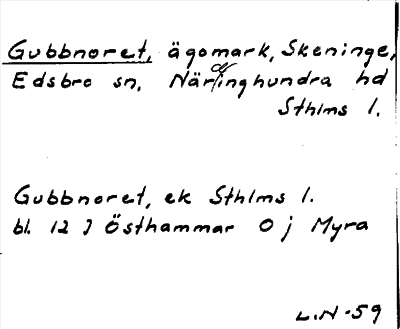 Gubbnoret, ägomark, Skeninge,
Edsbro sn, Närdinghundra hd
Sthlms l.
Gubbnoret, ek Sthlms l.
bl. 12 J Östhammar O j Myra
L.N -59